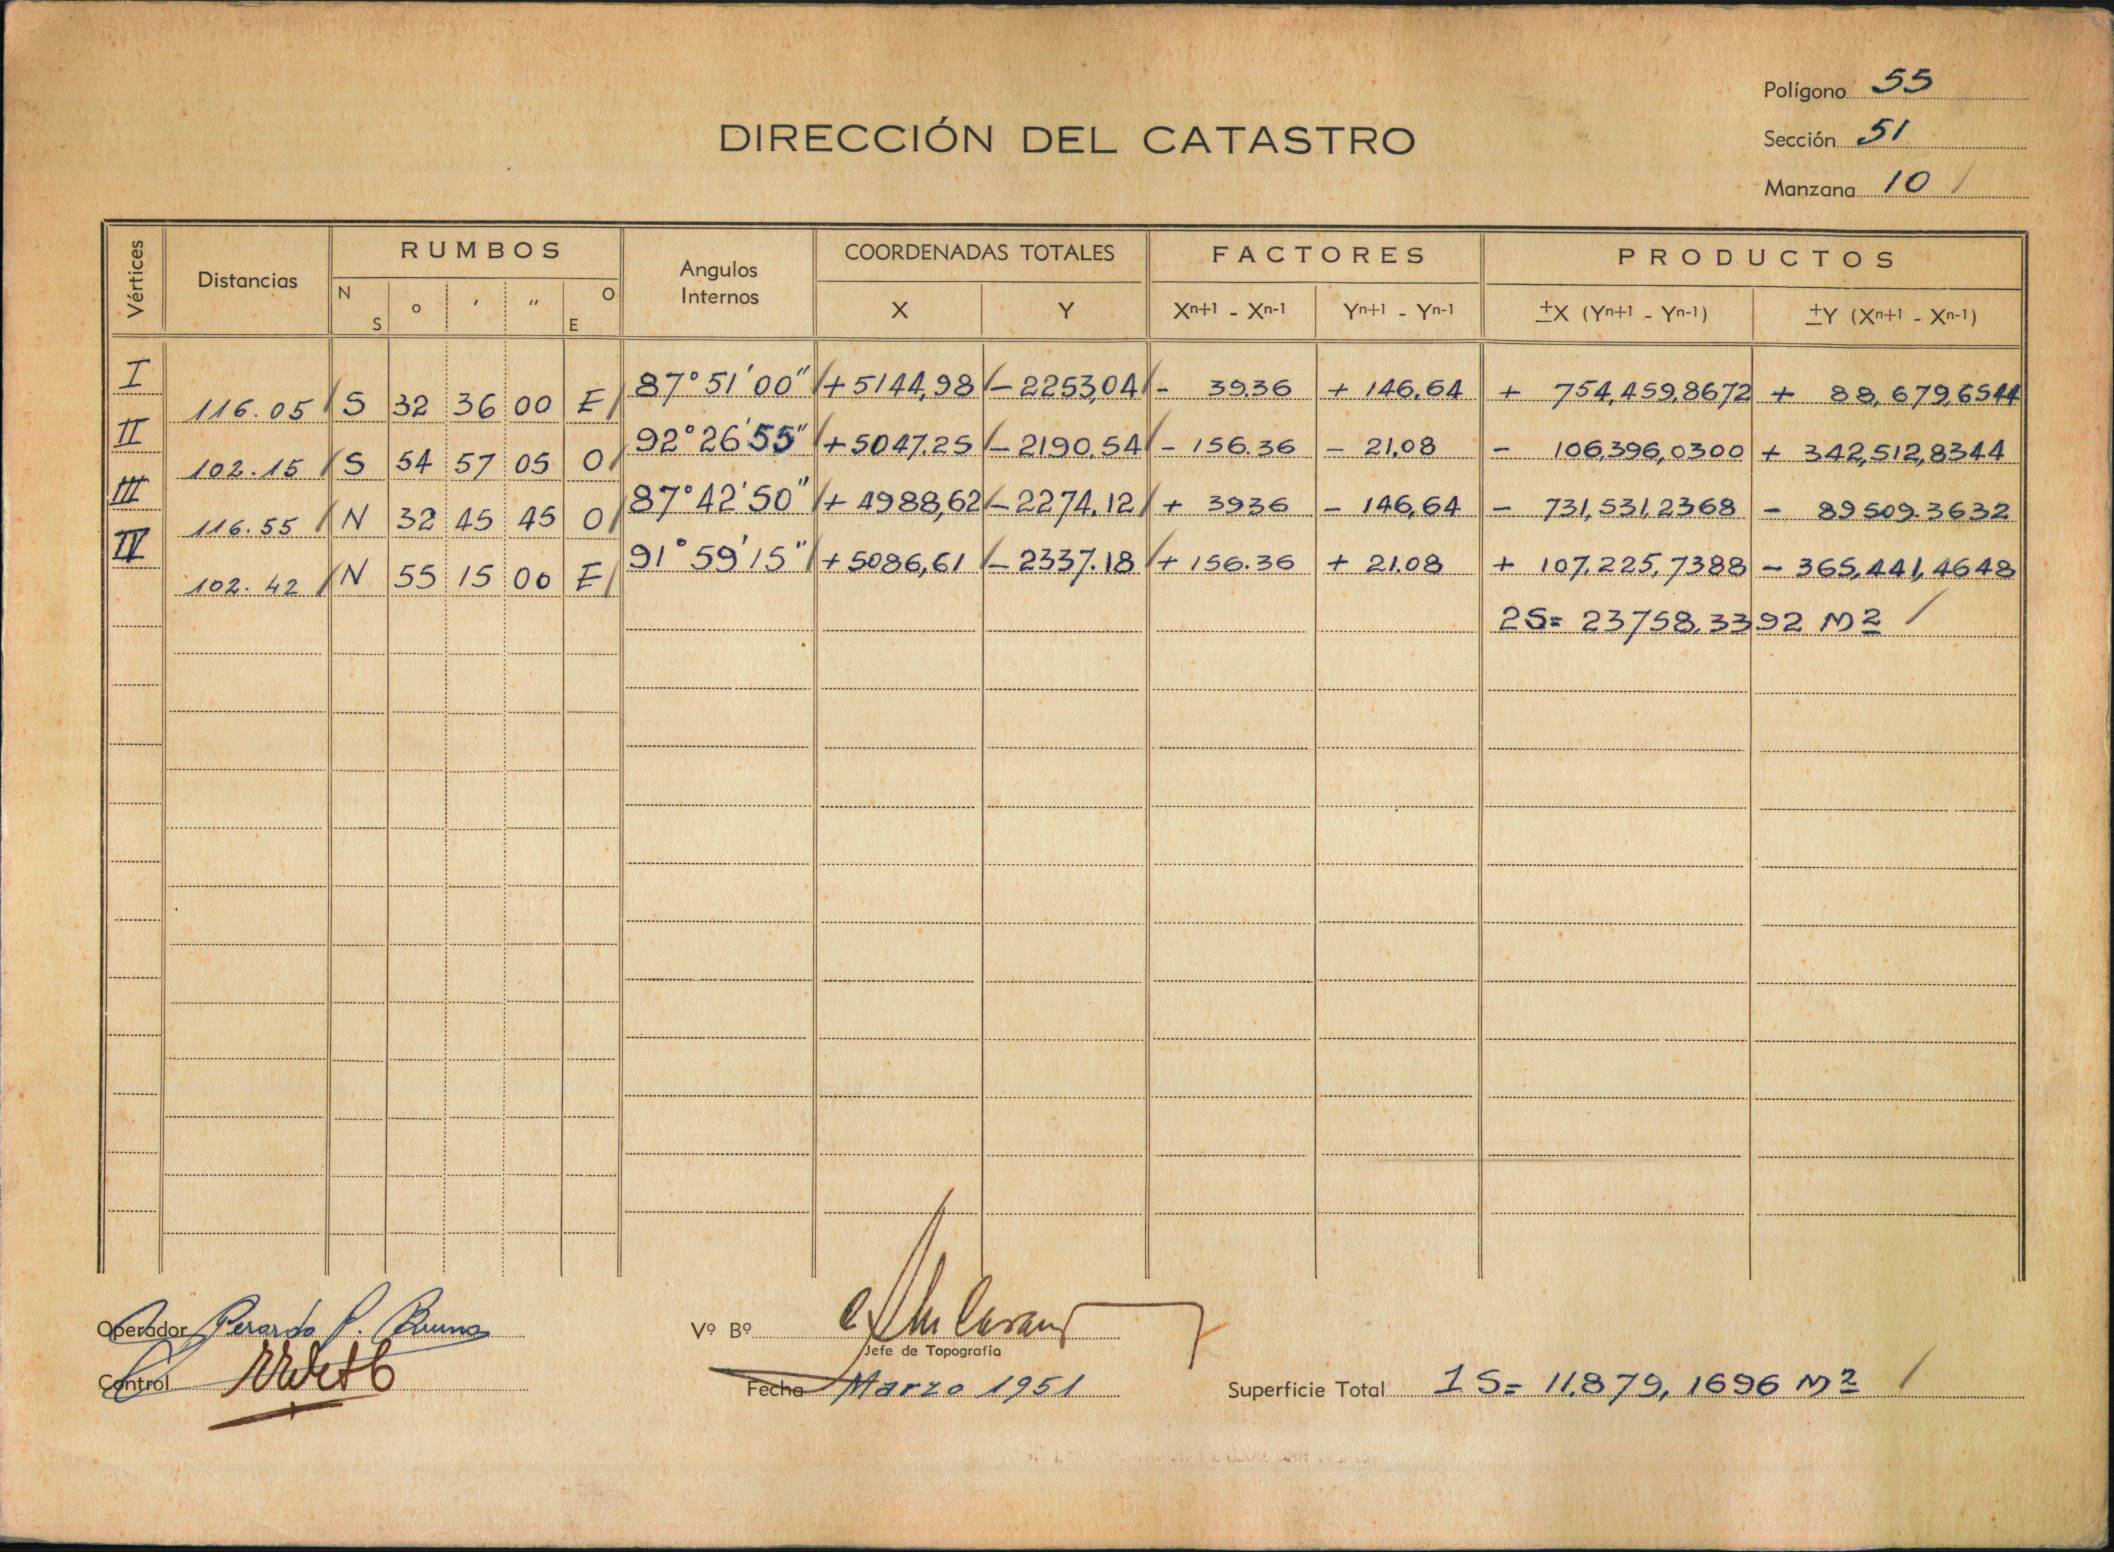 Polígono 55
DIRECCIÓN DEL CATASTRO
Sección 51
Manzana 10 /
Vértices Distancias RUMBOS Angulos Internos COORDENADAS TOTALES FACTORES PRODUCTOS
N S ° ' " O E X Y Xn+1 - Xn-1 Yn+1 - Yn-1 ±X (Yn+1 - Yn-1) ±Y (Xn+1 - Xn-1)
I 116.05 / S 32 36 00 E / 87°51'00" / +5144,98 / -2253,04 / - 39.36 + 146.64 + 754,459,8672 + 88,679,6544
II 102.15 / S 54 57 05 O / 92°26'55" / +5047.25 / -2190.54 / - 156.36 - 21.08 - 106,396,0300 + 342,512,8344
III 116.55 / N 32 45 45 O / 87°42'50" / + 4988,62 / -2274.12 / + 3936 - 146,64 - 731,531,2368 - 89509.3632
IV 102.42 / N 55 15 00 E / 91°59'15" / +5086,61 / -2337.18 / + 156.36 + 21.08 + 107,225,7388 - 365,441,4648
2S= 23758,3392 M2 /
Operador
Vº Bº
Jefe de Topografía
Control
Fecha Marzo 1951
Superficie Total 1S= 11.879,1696 M2 /